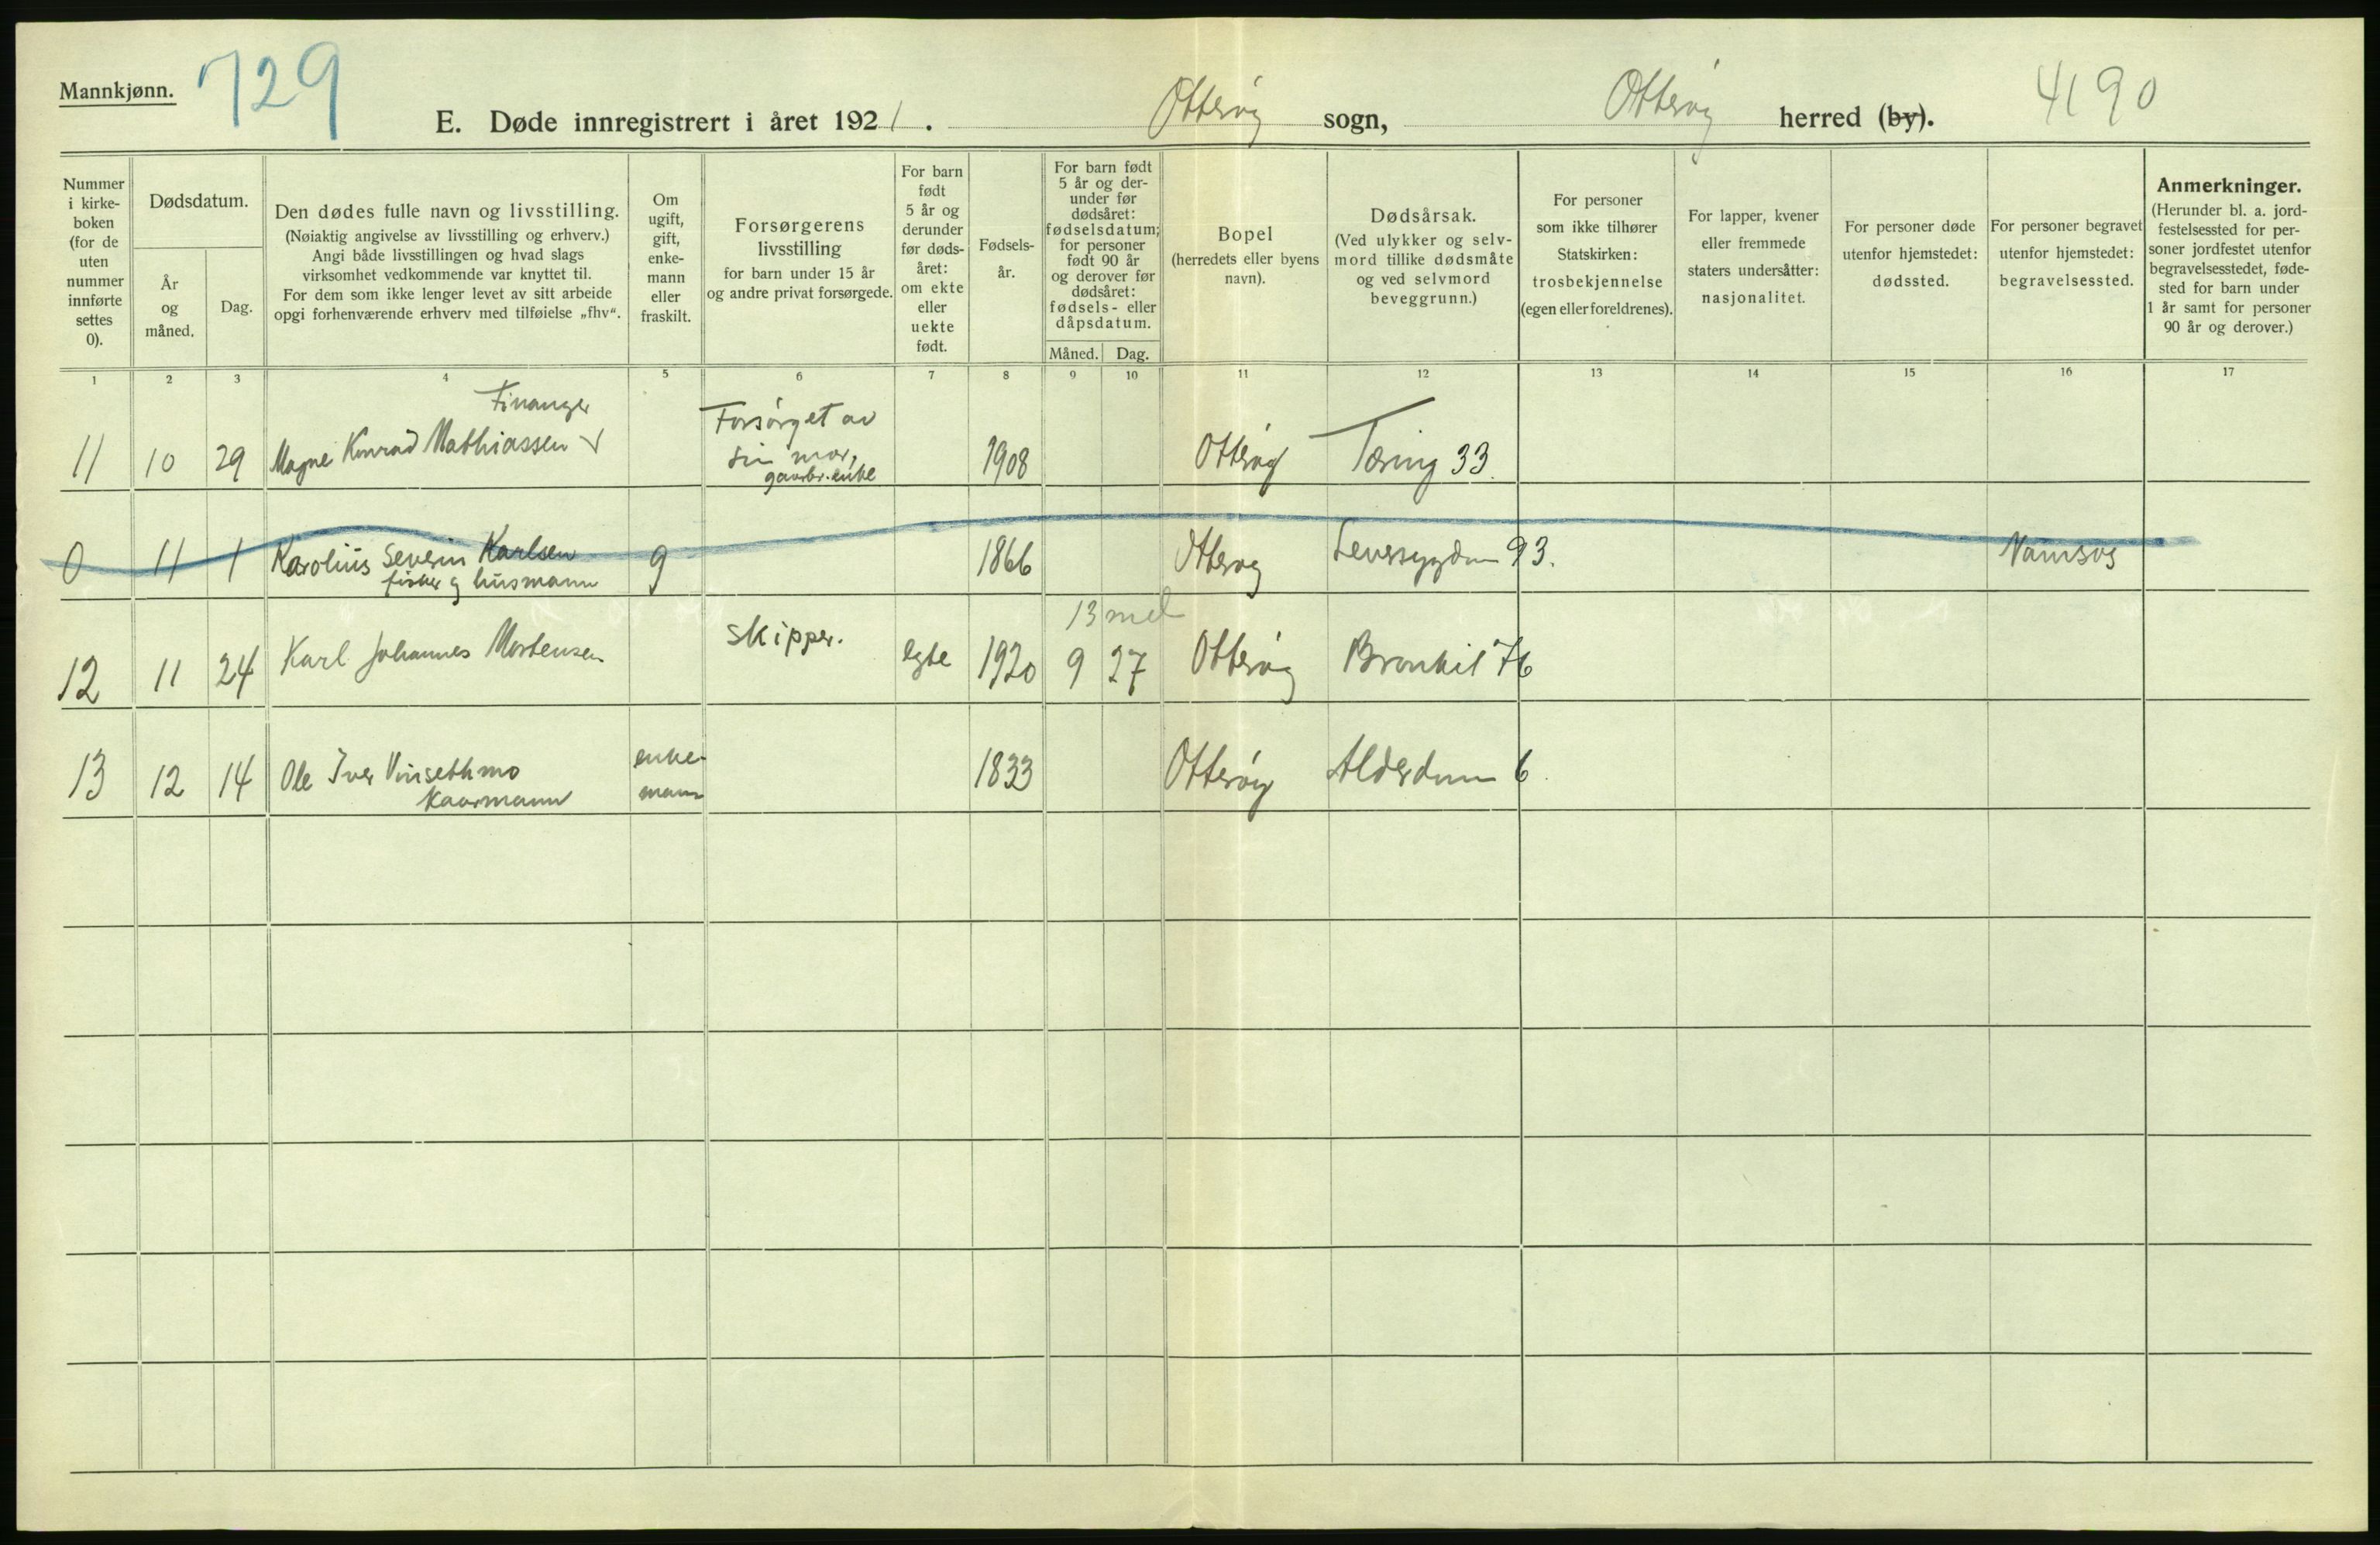 Mannkjønn. 729
E. Døde innregistrert i året 1921. Otterøy sogn, Otterøy herred (by). 4190
Nummer i kirkeboken (for de uten nummer innførte settes 0).
Dødsdatum.
År og måned.
Dag.
Den dødes fulle navn og livsstilling.
(Nøiaktig angivelse av livsstilling og erhverv.)
Angi både livsstillingen og hvad slags
virksomhet vedkommende var knyttet til.
For dem som ikke lenger levet av sitt arbeide
opgi forhenværende erhverv med tilføielse „fhv“.
Om ugift, gift, enkemann eller fraskilt.
Forsørgerens
livsstilling
for barn under 15 år
og andre privat forsørgede.
For barn født 5 år og derunder før dødsåret: om ekte eller uekte født.
Fødselsår.
For barn født 5 år og derunder før dødsåret: fødselsdatum; for personer født 90 år og derover før dødsåret: fødsels- eller dåpsdatum.
Måned. Dag.
Bopel
(herredets eller byens
navn).
Dødsårsak.
(Ved ulykker og selvmord tillike dødsmåte
og ved selvmord
beveggrunn.)
For personer
som ikke tilhører
Statskirken:
trosbekjennelse
(egen eller foreldrenes).
For lapper, kvener
eller fremmede
staters undersåtter:
nasjonalitet.
For personer døde
utenfor hjemstedet:
dødssted.
For personer begravet
utenfor hjemstedet:
begravelsessted.
Anmerkninger.
(Herunder bl. a. jordfestelsessted for personer jordfestet utenfor
begravelsesstedet, fødested for barn under
1 år samt for personer
90 år og derover.)
1 2 3 4 5 6 7 8 9 10 11 12 13 14 15 16 17
Finanger
11 10 29 Magne Konrad Mathiassen Forsørget av sin mor, gaarbr. enke 1908 Otterøy Tæring 33.
0 11 1 Karolius Severin Karlsen g 1866 Otterøy Leversygdom 93. Namsos
fisker og husmann
13 md
12 11 24 Karl Johannes Mortensen skipper. egte 1920 9 27 Otterøy Bronkit 76
13 12 14 Ole Iver Vinsethmo enkemann 1833 Otterøy Alderdom 6.
Kaarmann